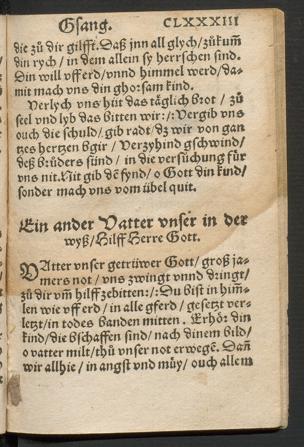 Gsang. CLXXXIII
die zů dir gilfft. Daß jnn all glych/ zůkum̃
din rych/ in dem allein sy herrschen sind.
Din will vff erd/ vnnd himmel werd/ da-
mit mach vns din ghorsam kind.
Verlych vns hüt das täglich brot/ zů
seel vnd lyb das bitten wir:/: Vergib vns
ouch die schuld/ gib radt/ dz wir von gan
tzes hertzen bgir/ Verzyhind gschwind/
deß brůders sünd/ in die versůchung für
vns nit. Nit gib dẽ fynd/ o Gott din kind/
sonder mach vns vom übel quit.
Ein ander Vatter vnser in der
wyß/ Hilff Herre Gott.
VAtter vnser getrüwer Gott/ groß ja-
mers not/ vns zwingt vnnd dringt/
zů dir vm̃ hilff zebitten:/: Du bist in him̃-
len wie vff erd/ in alle gferd/ gesetzt ver-
letzt/ in todes banden mitten. Erhör din
kind/ die bschaffen sind/ nach dinem bild/
o vatter milt/ thů vnser not erwegẽ. Dañ
wir allhie/ in angst vnd müy/ ouch allem